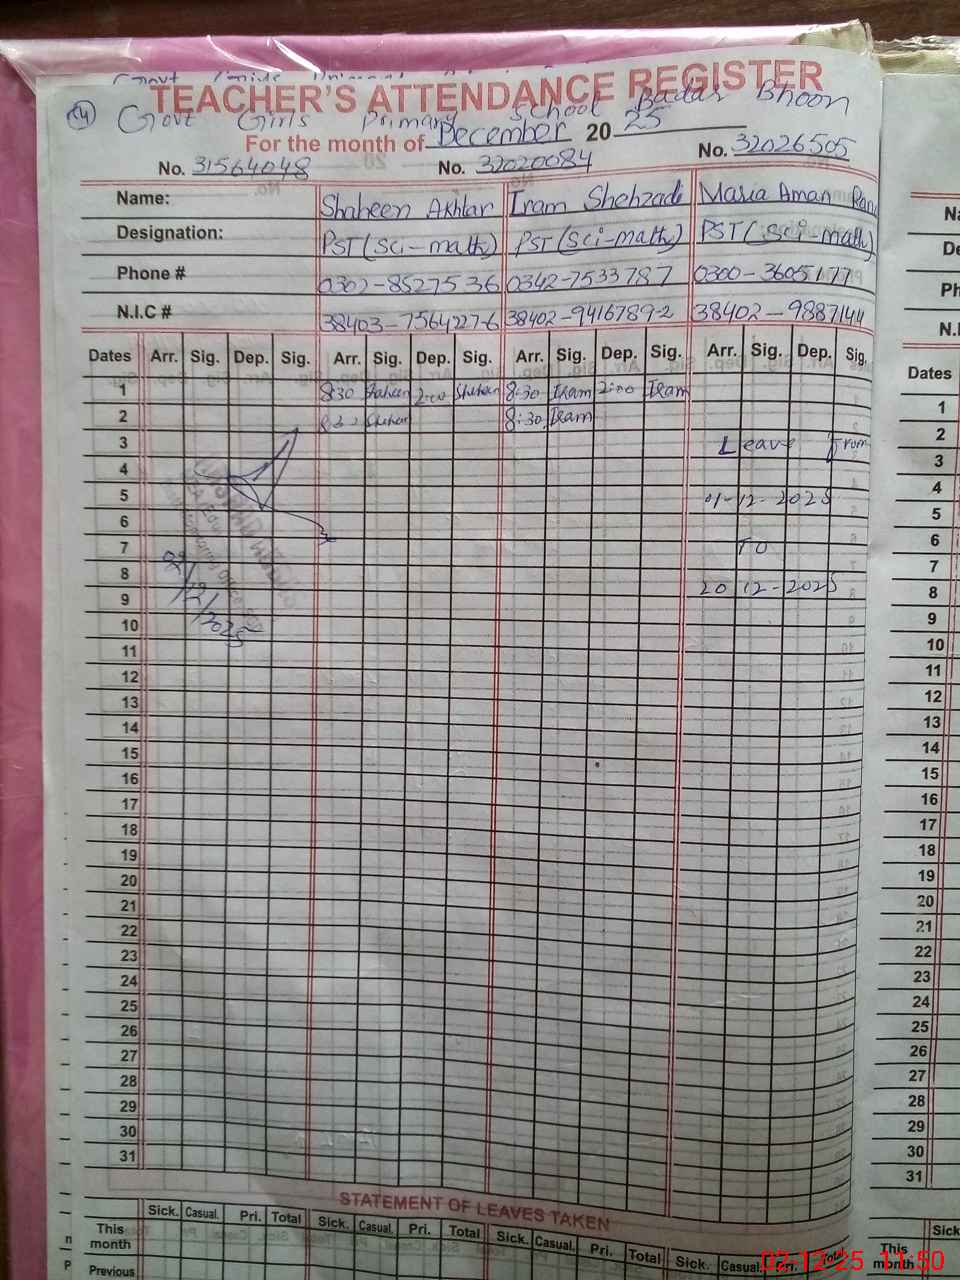 TEACHER'S ATTENDANCE REGISTER
24 Govt Girls Primary School Badar Bhoon
For the month of December 20 25
No. 31564048 No. 32020084 No. 32026505
Name: Shaheen Akhtar Iram Shehzadi Maria Aman Rana
Designation: PST(Sci-math) PST(Sci-math) PST(Sci-math)
Phone # 0302-8527536 0342-7533787 0300-3605177
N.I.C # 38403-7564227-6 38402-9416789-2 38402-9887144
Dates Arr. Sig. Dep. Sig. Arr. Sig. Dep. Sig. Arr. Sig. Dep. Sig. Arr. Sig. Dep. Sig.
1 8:30 Shaheen 2:00 Shaheen 8:30 Iram 2:00 Iram
2 8:30 Shaheen 8:30 Iram
3 Leave From
4
5 01-12-2025
6
7 To
8 20-12-2025
9
10
11
12
13
14
15
16
17
18
19
20
21
22
23
24
25
26
27
28
29
30
31
02/12/2025
STATEMENT OF LEAVES TAKEN
Sick. Casual. Pri. Total Sick. Casual. Pri. Total Sick. Casual. Pri. Total Sick. Casual. Pri. Total
This month
Previous
Dates
1
2
3
4
5
6
7
8
9
10
11
12
13
14
15
16
17
18
19
20
21
22
23
24
25
26
27
28
29
30
31
Sick
This month
02-12-25 11:50